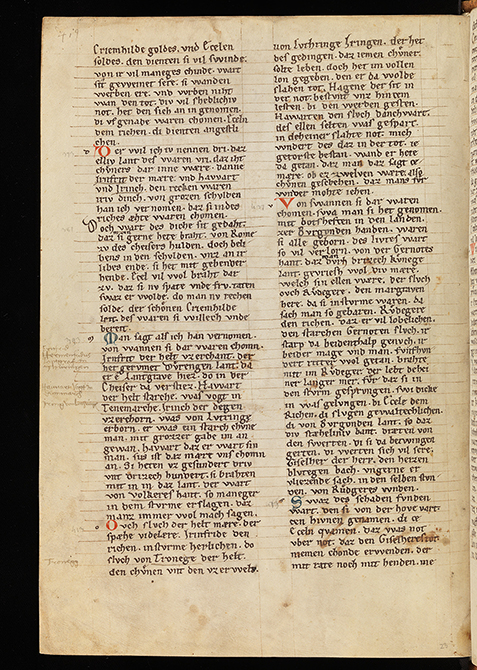 Criemhilde goldes. vnd Ecelen
soldes. den dienten si vil swinde.
von ir vil maneges chinde. wart
sit geweinet sere. si wanden
werben ere. vnd wrben niht
wan den tot. div vil shedlichiv
not. het den sich an genomen.
di vf genade waren chomen. Ecelen
dem richen. di dienten angestli
chen.
Der wil ich iv nennen dri. daz
elliv lant des waren vri. daz iht
chvners dar inne were. danne
Irnfrit der mære. vnd hawart
vnd Irinch. den recken waren
iriv dinch. von grozen schvlden
han ich vernomen. daz si in des
riches æhte waren chomen.
Doch wart des dicke sit gedaht.
daz si gerne hete braht. von Rome
vz des cheisers hulden. doch beli
bens in den schvlden. vnz an ir
libes ende. si het mit gebender
hende. Ecel vil wol braht dar
zv. daz si nv spate vnde frv. taten
swaz er wolde. do man nv rechen
solde. der schonen Criemhilde
leit. des waren si willech vnde
bereit.
Man sagt als ich han vernomen.
von wannen si dar waren chomn.
Irnfrit der helt vz erchant. der
het gervmet Dvrengen lant. da
er e lantgrave hiez. do in der
Cheiser da verstiez. Hawart
der helt starche. was vogt in
Tenemarche. Irinch der degen
vzerchorn. was von Lvtringe
erborn. er was ein starch chvne
man. mit grozzer gabe im an
gewan. hawart daz er wart sin
man. sus ist daz mære vns chomn
an. Si heten vz gesundert driv
vnt drizech hundert. si brahten
mit in in daz lant. der wart
von volkeres hant. so maneger
in dem sturme erslagen. daz
manz immer wol mach sagen.
Ovch slvch der helt mære. der
spæhe videlære. Irinfride den
richen. insturme herlichen. do
slvch von Tronege der helt.
den chvnen vnt den vz erwelt.
von Luthringe Iringen. der het
des gedingen. daz iemen chvner
solte leben. doch het im vollen
lon gegeben. den er da wolde
slahen tot. Hagene der sit in
der not. bestvnt vnz hin ze
lesten. bi den werden gesten.
Hawarten den slvch danchwart.
des ellen selten was gespart.
in deheiner slahte not. mich
wundert des daz in der tot. ie
getorste bestan. wand er hete
da getan. daz man daz sagt ze
mære. ob ez zwelven wære also
chvnen geschehen. daz mans fvr
wunder mohte iehen.
Von swannen si dar waren
chomen. swa man si het genomen.
mit botsheften in den landen.
zer Bvrgonden handen. waren
si alle geborn. des lives wart
so vil verlorn. von der Gernotes
hant. daz dvrh drizech kvnege
lant. gevriesh wol div mære.
welch sin ellen wære. der slvch
ovch Rvdegere. den margraven
here. da si insturme waren. da
sach man so gebaren. Rvdegere
den richen. daz er vil lobelichen.
den starchen Gernoten slvch. ir
starp da beidenthalp genvch. ir
beider mage vnd man. fvnfhvn
dert ritter wol getan. brahte
mit im Rvdeger. der lebt deheı
ner langer mer. fvr daz si in
den sturm gesprvngen. swi dicke
in was gelvngen. di Ecele dem
Richen. di slvgen gewaltechlichen.
di von Bvrgonden lant. so daz
div stæhelniv bant. dræten von
den swerten. di si da betwingen
gerten. di werten sich vil sere.
Giselher der herre. den herten
blvtegen bach. vngerne er
vliezende sach. in den selben stvn
den. von Rvdgeres wnden.
Swaz des schaden fvnden
wart. den si von der hove vart.
den hivnen genamen. di ce
Eceln qvamen. daz was not
vber not. daz den Giselheres tot.
niemen chonde erwenden. der
mit rate noch mit henden. nie